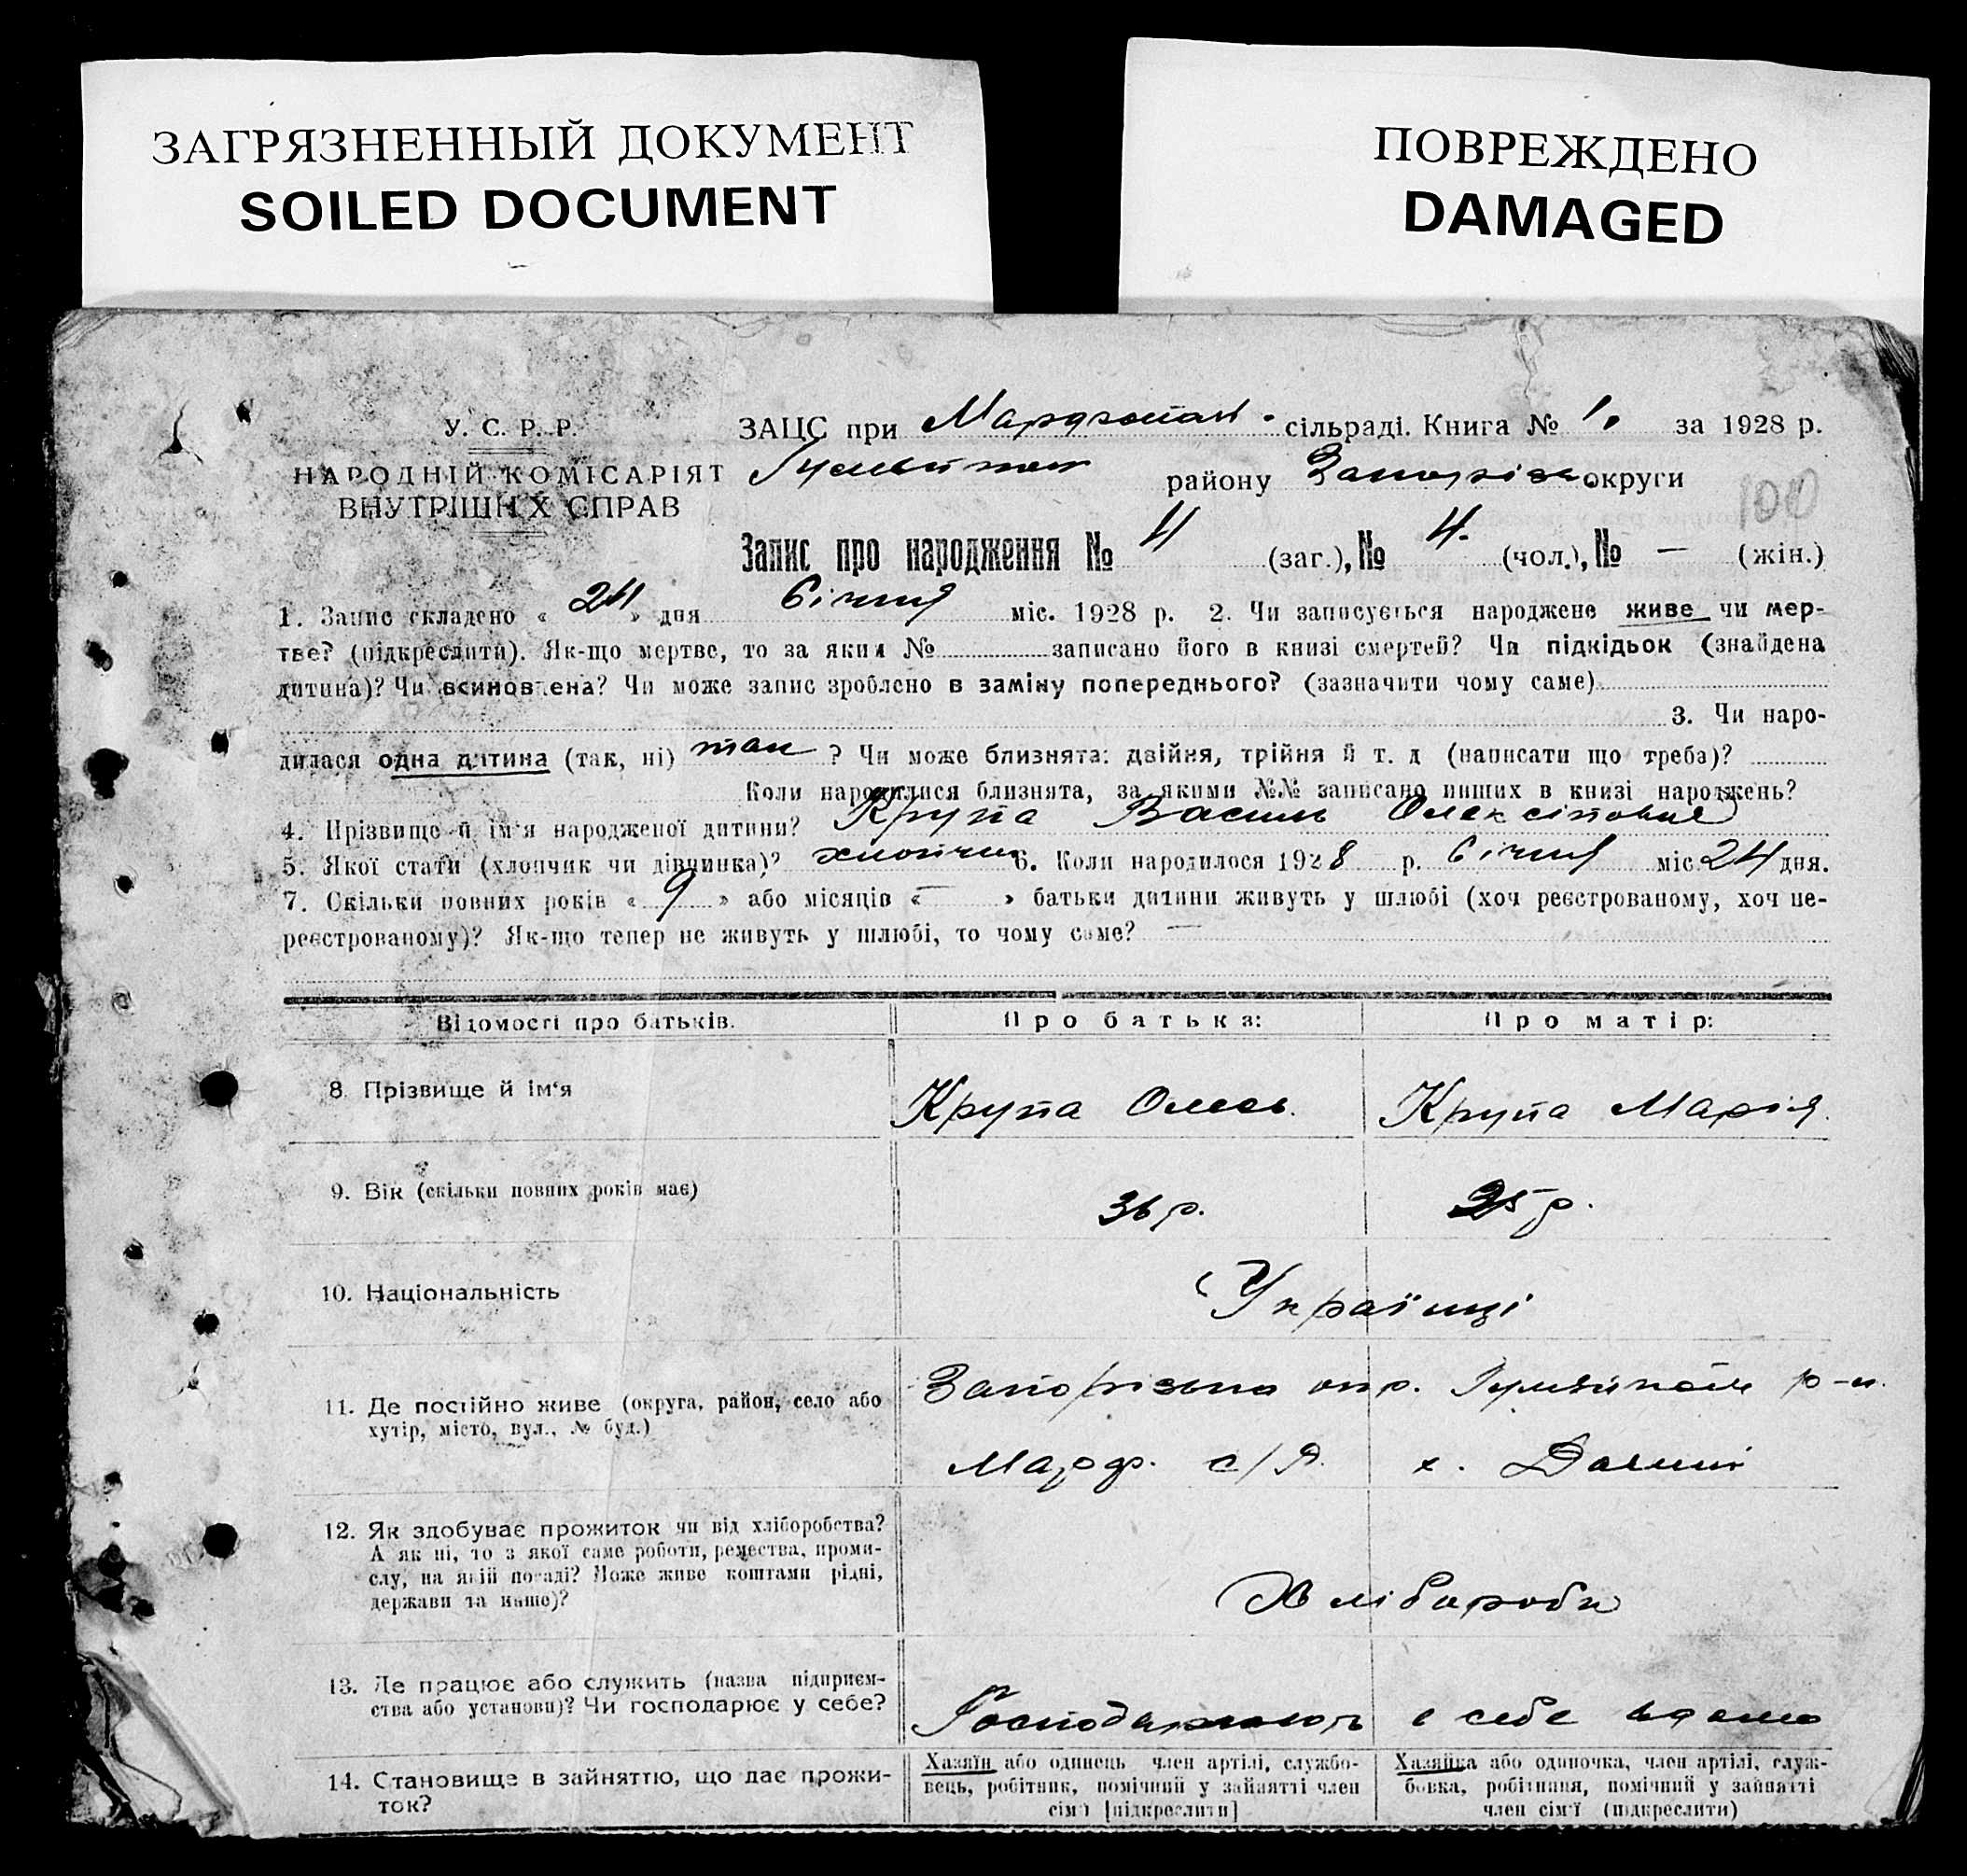 ЗАГРЯЗНЕННЫЙ ДОКУМЕНТ
SOILED DOCUMENT
ПОВРЕЖДЕНО
DAMAGED
У. С. Р. Р.
НАРОДНІЙ КОМІСАРІЯТ
ВНУТРІШНІХ СПРАВ
ЗАЦС при сільраді. Книга № 1. за 1928 р.
району Запоріз. округи
100
Запис про народження № 4 (заг.), № 4. (чол.), № — (жін.)
1. Запис складено « 24 » дня Січня міс. 1928 р. 2. Чи записується народжене живе чи мер-
тве? (підкреслити). Як-що мертве, то за яким № записано його в книзі смертей? Чи підкідьок (знайдена
дитина)? Чи всиновлена? Чи може запис зроблено в заміну попереднього? (зазначити чому саме)
3. Чи наро-
дилася одна дитина (так, ні) так ? Чи може близнята: двійня, трійня й т. д (написати що треба)?
Коли народилися близнята, за якими №№ записано инших в книзі народжень?
4. Прізвище й ім'я народженої дитини? Крупа Василь Олексійович
5. Якої стати (хлопчик чи дівчинка)? хлопчик 6. Коли народилося 1928 р. Січня міс. 24 дня.
7. Скільки повних років « 9 » або місяців « — » батьки дитини живуть у шлюбі (хоч реєстрованому, хоч не-
реєстрованому)? Як-що тепер не живуть у шлюбі, то чому саме? —
Відомості про батьків. Про батька: Про матір:
8. Прізвище й ім'я Крупа Олесь. Крупа Марія.
9. Вік (скільки повних років має) 36 р. 35 р.
10. Національність Українці
11. Де постійно живе (округа, район, село або
хутір, місто, вул., № буд.)
Запорізька окр. Гуляйпіль р-н.
Марф. с/Р. х.
12. Як здобуває прожиток чи від хліборобства?
А як ні, то з якої саме роботи, ремества, проми-
слу, на якій посаді? Може живе коштами рідні,
держави та инше)?
Хлібороби
13. Де працює або служить (назва підприєм-
ства або установи)? Чи господарює у себе?
Господарюють в себе вдома
14. Становище в зайняттю, що дає прожи-
ток?
Хазяїн або одинець член артілі, службо-
вець, робітник, помічний у зайнятті член
сім'ї [підкреслити]
Хазяйка або одиночка, член артілі, служ-
бовка, робітниця, помічний у зайнятті
член сім'ї (підкреслити)